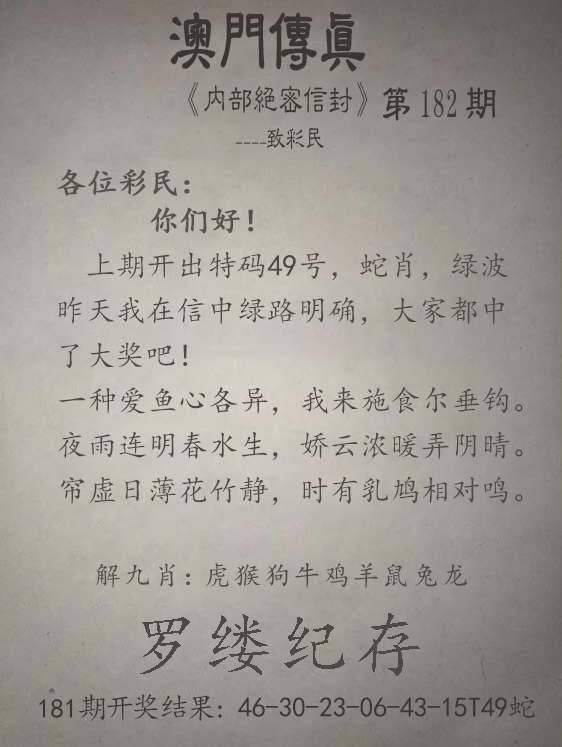 澳門傳眞
《内部絕密信封》第182期
----致彩民
各位彩民：
你们好！
上期开出特码49号，蛇肖，绿波
昨天我在信中绿路明确，大家都中
了大奖吧！
一种爱鱼心各异，我来施食尔垂钩。
夜雨连明春水生，娇云浓暖弄阴晴。
帘虚日薄花竹静，时有乳鸠相对鸣。
解九肖：虎猴狗牛鸡羊鼠兔龙
罗缕纪存
181期开奖结果：46-30-23-06-43-15T49蛇